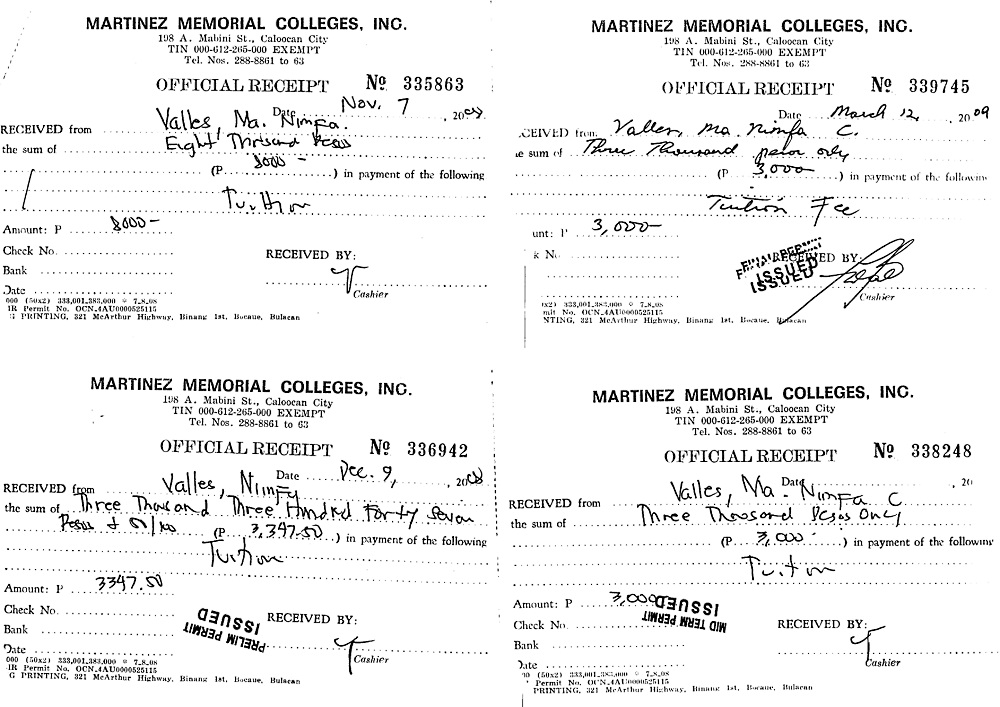 MARTINEZ MEMORIAL COLLEGES, INC.
198 A. Mabini St., Caloocan City
TIN 000-612-265-000 EXEMPT
Tel. Nos. 288-8861 to 63
OFFICIAL RECEIPT Nº 335863
Date Nov. 7, 2008
RECEIVED from Valles, Ma. Nimfa.
the sum of Eight Thousand Pesos
(P 8000 - ) in payment of the following
Tuition
Amount: P 8000 -
Check No. RECEIVED BY:
Bank
Date Cashier
000 (50x2) 333,001-383,000 * 7-8-08
IR Permit No. OCN-4AU0000525115
G PRINTING, 321 McArthur Highway, Binang 1st, Bocaue, Bulacan
MARTINEZ MEMORIAL COLLEGES, INC.
198 A. Mabini St., Caloocan City
TIN 000-612-265-000 EXEMPT
Tel. Nos. 288-8861 to 63
OFFICIAL RECEIPT Nº 339745
Date March 12, 2009
CEIVED from Valles, Ma. Nimfa C.
e sum of Three Thousand pesos only
(P 3,000 ) in payment of the following
Tuition Fee
unt: P 3,000
k No. RECEIVED BY:
ISSUED
Cashier
0x2) 333,001-383,000 * 7-8-08
mit No. OCN-4AU0000525115
NTING, 321 McArthur Highway, Binang 1st, Bocaue, Bulacan
MARTINEZ MEMORIAL COLLEGES, INC.
198 A. Mabini St., Caloocan City
TIN 000-612-265-000 EXEMPT
Tel. Nos. 288-8861 to 63
OFFICIAL RECEIPT Nº 336942
Date Dec. 9, 2008
RECEIVED from Valles, Nimfa
the sum of Three Thousand Three Hundred Forty Seven
Pesos & 50/100 (P 3,347.50 ) in payment of the following
Tuition
Amount: P 3347.50
Check No. RECEIVED BY:
PRELIM PERMIT
ISSUED
Bank
Date Cashier
000 (50x2) 333,001-383,000 * 7-8-08
IR Permit No. OCN-4AU0000525115
G PRINTING, 321 McArthur Highway, Binang 1st, Bocaue, Bulacan
MARTINEZ MEMORIAL COLLEGES, INC.
198 A. Mabini St., Caloocan City
TIN 000-612-265-000 EXEMPT
Tel. Nos. 288-8861 to 63
OFFICIAL RECEIPT Nº 338248
Date , 20
RECEIVED from Valles, Ma. Nimfa C
the sum of Three Thousand Pesos Only
(P 3,000 - ) in payment of the following
Tuition
Amount: P 3,000
MID TERM PERMIT
ISSUED
Check No. RECEIVED BY:
Bank
Date Cashier
00 (50x2) 333,001-383,000 * 7-8-08
Permit No. OCN-4AU0000525115
PRINTING, 321 McArthur Highway, Binang 1st, Bocaue, Bulacan